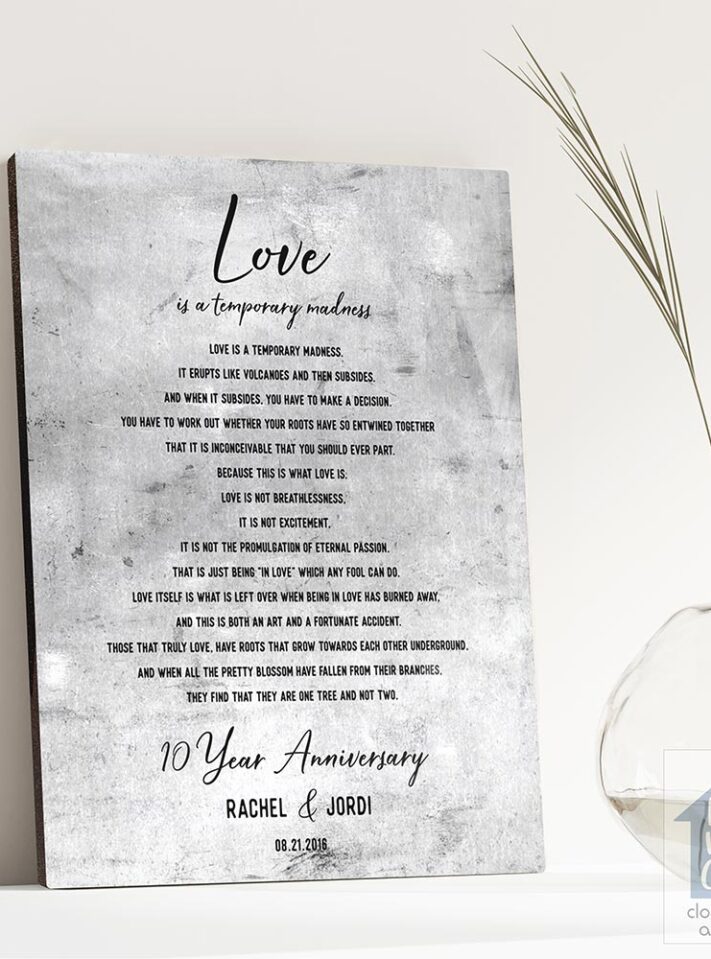 Love
is a temporary madness
LOVE IS A TEMPORARY MADNESS.
IT ERUPTS LIKE VOLCANOES AND THEN SUBSIDES.
AND WHEN IT SUBSIDES, YOU HAVE TO MAKE A DECISION.
YOU HAVE TO WORK OUT WHETHER YOUR ROOTS HAVE SO ENTWINED TOGETHER
THAT IT IS INCONCEIVABLE THAT YOU SHOULD EVER PART.
BECAUSE THIS IS WHAT LOVE IS.
LOVE IS NOT BREATHLESSNESS,
IT IS NOT EXCITEMENT,
IT IS NOT THE PROMULGATION OF ETERNAL PASSION.
THAT IS JUST BEING "IN LOVE" WHICH ANY FOOL CAN DO.
LOVE ITSELF IS WHAT IS LEFT OVER WHEN BEING IN LOVE HAS BURNED AWAY,
AND THIS IS BOTH AN ART AND A FORTUNATE ACCIDENT.
THOSE THAT TRULY LOVE, HAVE ROOTS THAT GROW TOWARDS EACH OTHER UNDERGROUND.
AND WHEN ALL THE PRETTY BLOSSOM HAVE FALLEN FROM THEIR BRANCHES,
THEY FIND THAT THEY ARE ONE TREE AND NOT TWO.
10 Year Anniversary
RACHEL & JORDI
08.21.2016